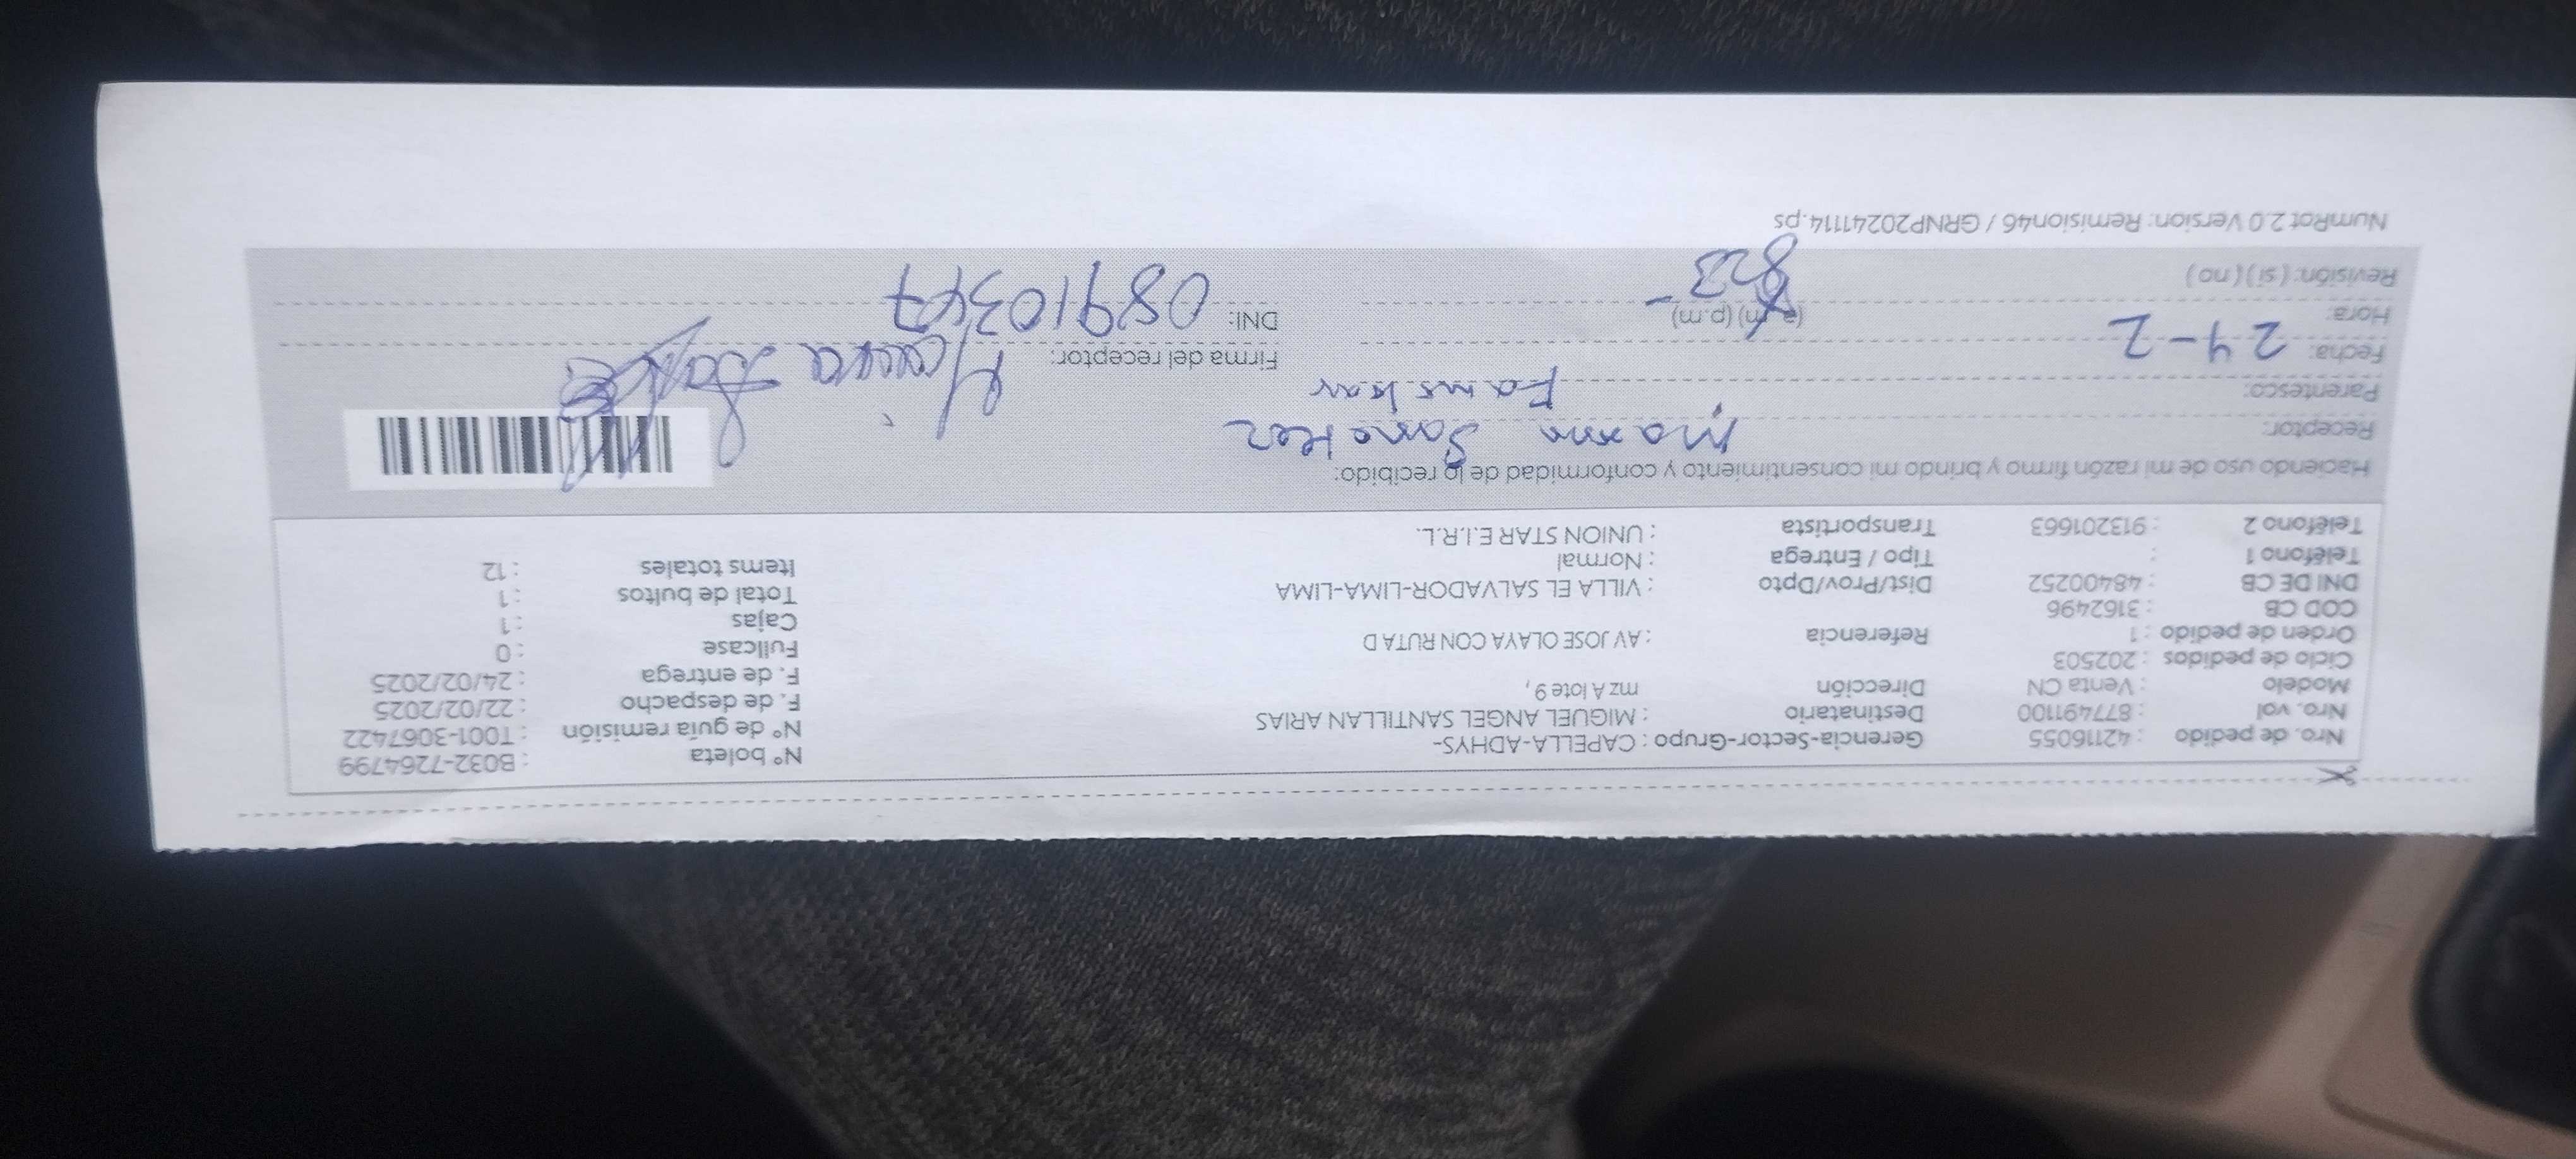 Nro. de pedido : 42116055 Gerencia-Sector-Grupo : CAPELLA-ADHYS- N° boleta : B032-7264799
Nro. vol : 877491100 Destinatario : MIGUEL ANGEL SANTILLAN ARIAS N° de guía remisión : T001-3067422
Modelo : Venta CN Dirección mz A lote 9, F. de despacho : 22/02/2025
Ciclo de pedidos : 202503 F. de entrega : 24/02/2025
Orden de pedido : 1 Referencia : AV JOSE OLAYA CON RUTA D Fullcase : 0
COD CB : 3162496 Cajas : 1
DNI DE CB : 48400252 Dist/Prov/Dpto : VILLA EL SALVADOR-LIMA-LIMA Total de bultos : 1
Teléfono 1 : Tipo / Entrega : Normal Items totales : 12
Teléfono 2 : 913201663 Transportista : UNION STAR E.I.R.L.
Haciendo uso de mi razón firmo y brindo mi consentimiento y conformidad de lo recibido:
Receptor:
Parentesco:
Fecha: 24-2 Firma del receptor:
Hora: (a.m) (p.m) DNI:
Revisión: (si) (no)
NumRot 2.0 Version: Remision46 / GRNP20241114.ps